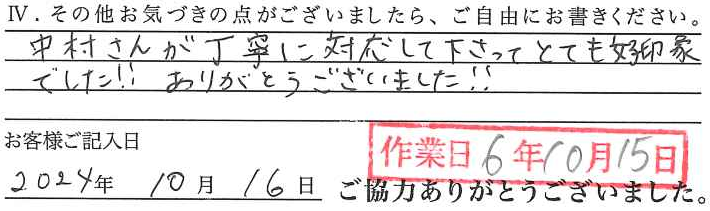 Ⅳ．その他お気づきの点がございましたら、ご自由にお書きください。
中村さんが丁寧に対応して下さってとても好印象
でした!! ありがとうございました!!
お客様ご記入日
作業日 6年10月15日
2024年 10月 16日 ご協力ありがとうございました。